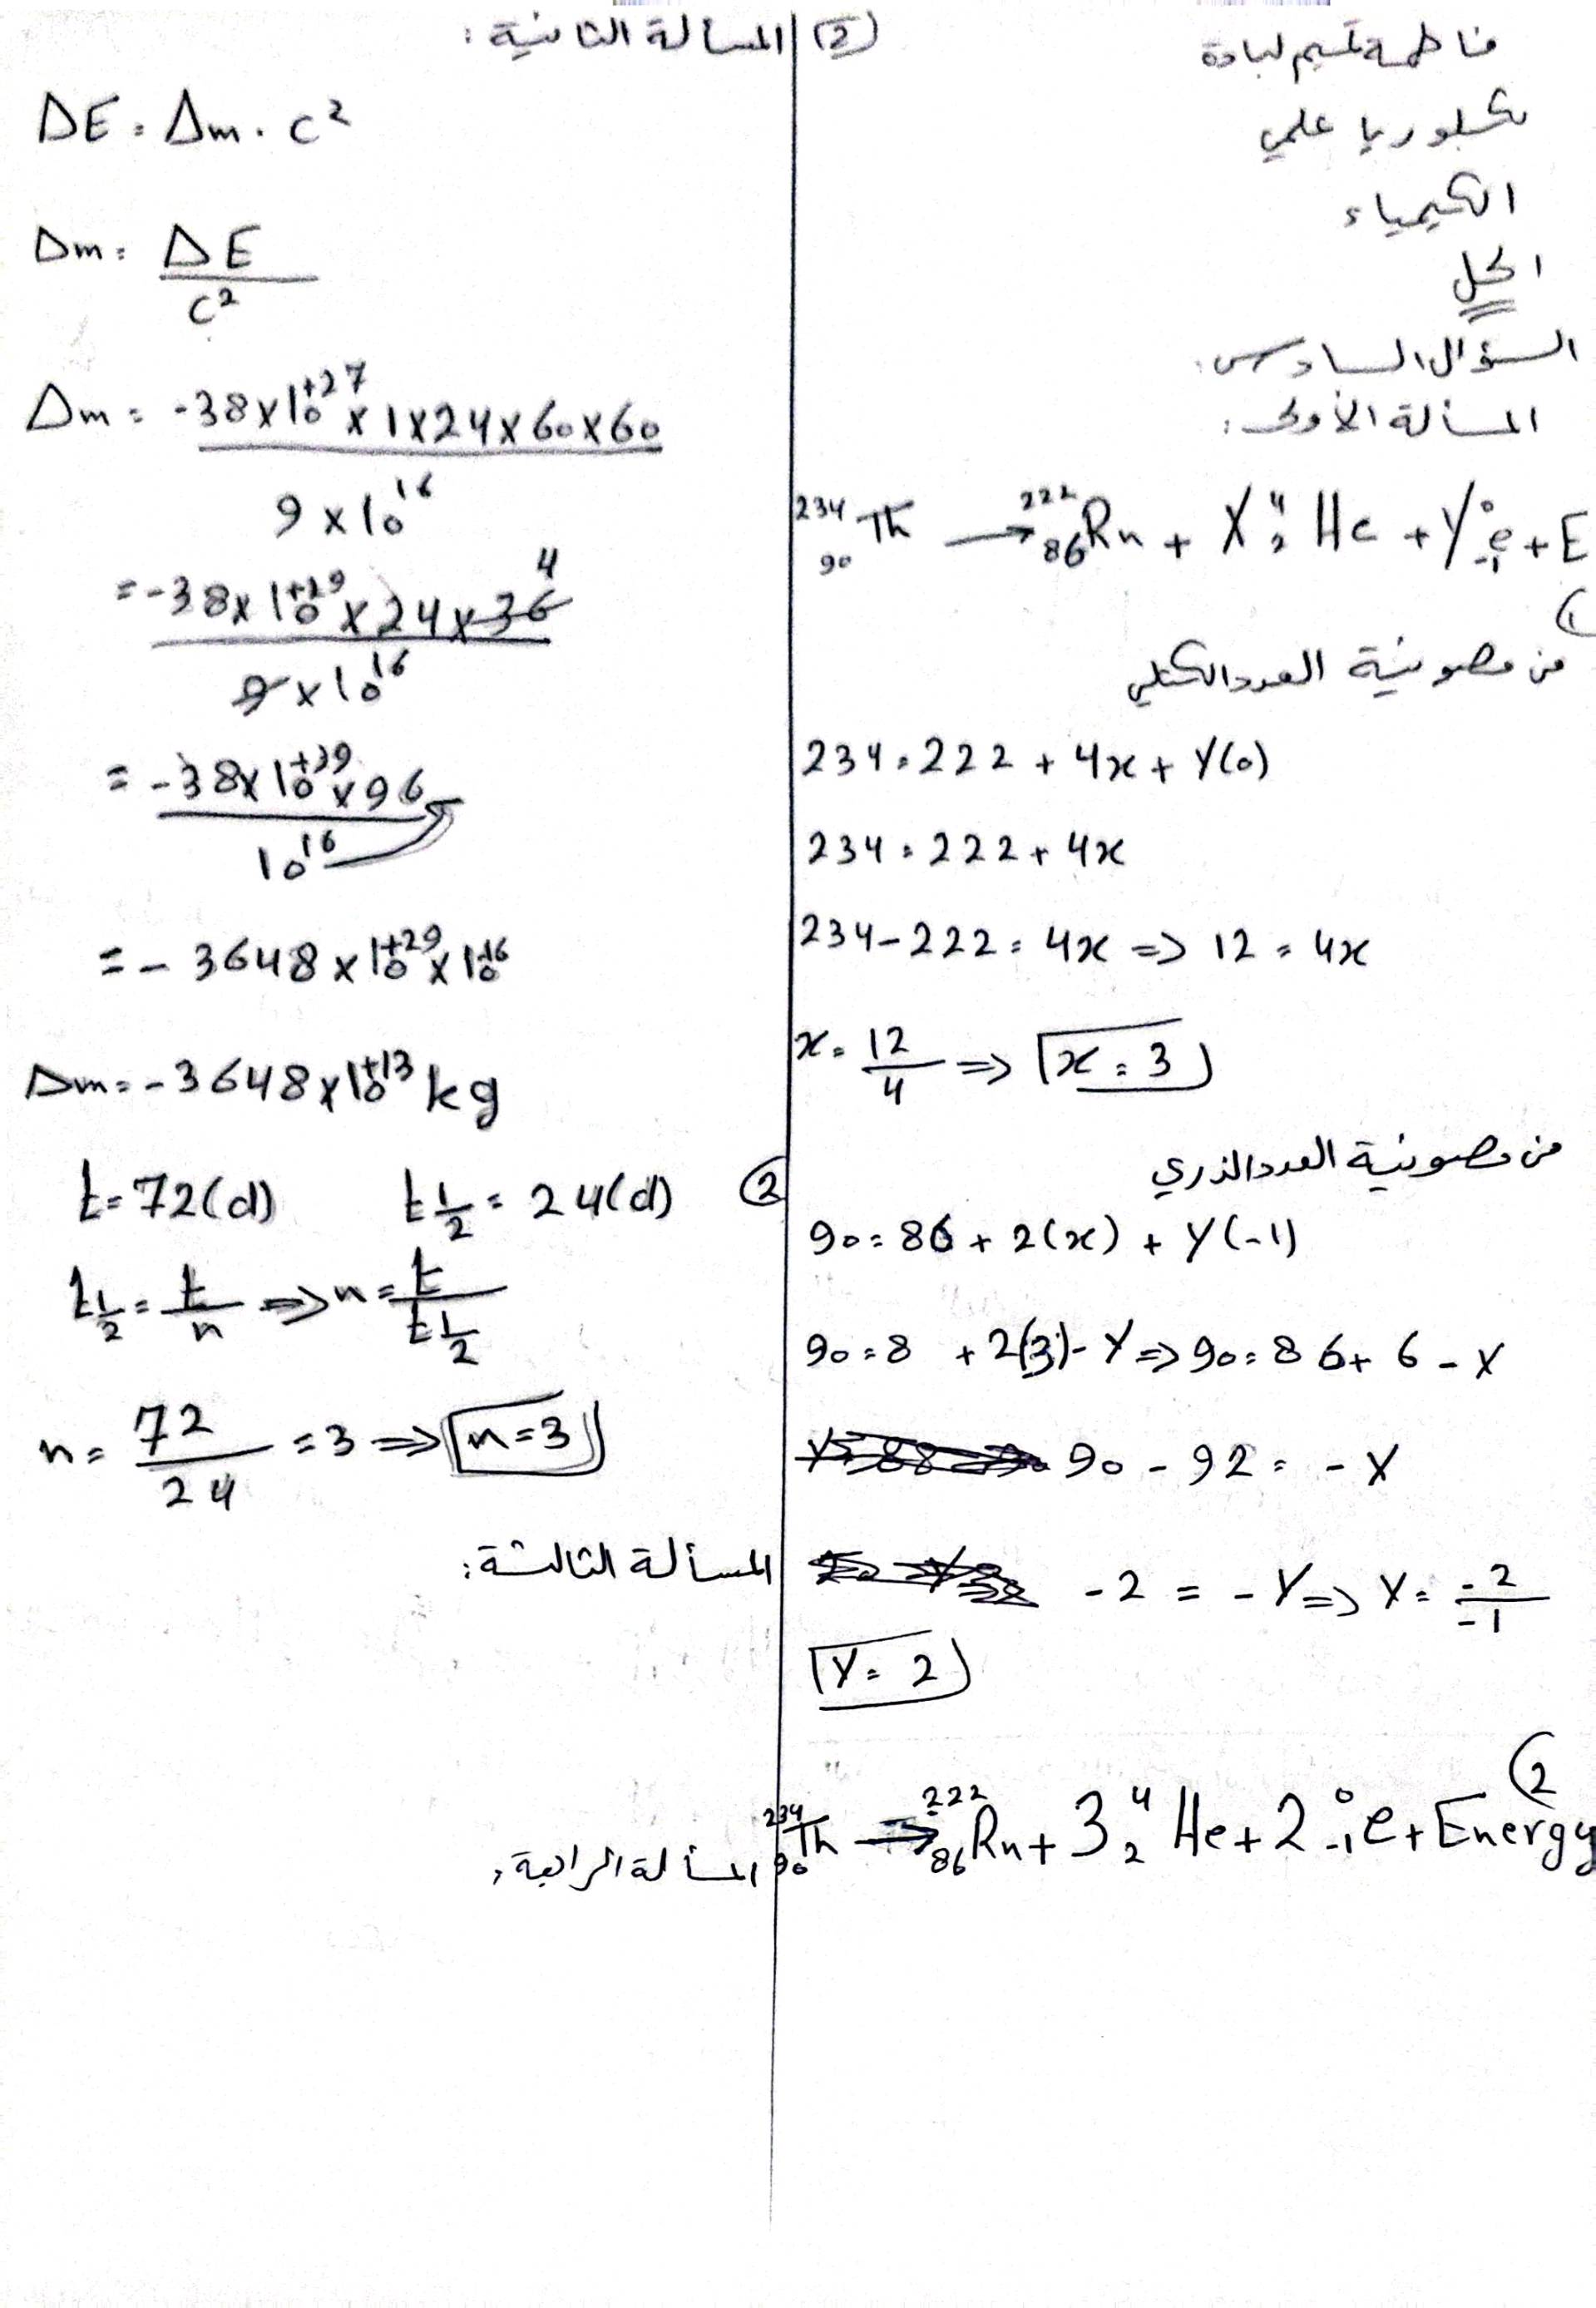 فاطمة تسيم لبادة
بكلوريا علمي
الكيمياء
الحل
السؤال السادس:
المسألة الأولى:
²³⁴₉₀Th → ²²²₈₆Rn + X ⁴₂He + Y ⁰₋₁e + E
1)
من مصونية العدد الكتلي
234 = 222 + 4x + Y(0)
234 = 222 + 4x
234 - 222 = 4x => 12 = 4x
x = 12/4 => x = 3
من مصونية العدد الذري
90 = 86 + 2(x) + Y(-1)
90 = 8 + 2(3) - Y => 90 = 86 + 6 - X
90 - 92 = - X
-2 = - Y => Y = -2/-1
Y = 2
2
²³⁴₉₀Th → ²²²₈₆Rn + 3 ⁴₂He + 2 ⁰₋₁e + Energy
2) المسألة الثانية:
ΔE = Δm . c²
Δm = ΔE/c²
Δm = -38 x 10⁺²⁷ x 1 x 24 x 60 x 60 / 9 x 10¹⁶
= -38 x 10⁺²⁹ x 24 x 36 4 / 9 x 10¹⁶
= -38 x 10⁺²⁹ x 96 / 10¹⁶
= - 3648 x 10⁺²⁹ x 10⁻¹⁶
Δm = - 3648 x 10⁺¹³ kg
2 t = 72(d) t 1/2 = 24(d)
t 1/2 = t/n => n = t / t 1/2
n = 72/24 = 3 => n = 3
المسألة الثالثة:
المسألة الرابعة: